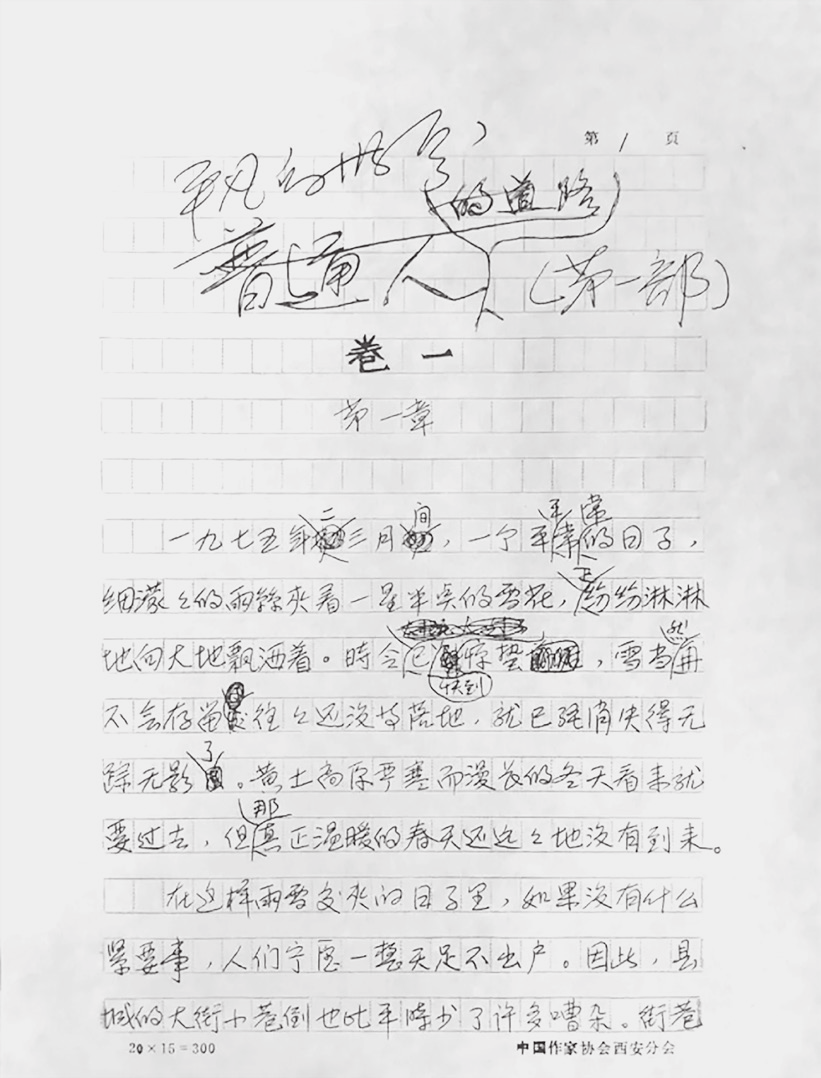 第1页
平凡的世界
的道路
普通人
(第一部)
卷一
第一章
二 间 平常
一九七五年三月,一个平常的日子,
正
细濛々的雨絲夾着一星半点的雪花,纷纷淋淋
然
地向大地飘洒着。時令已惊蛰,雪当再
快到
不会存留往々还没等落地,就已经消失得无
了
踪无影。黄土高原严寒而漫长的冬天看来就
那
要过去,但真正温暖的春天还远々地没有到来。
在这样雨雪交夹的日子里,如果没有什么
紧要事,人们宁愿一整天足不出户。因此,县
城的大街小巷倒也比平時少了许多嘈杂。街巷
20×15=300 中国作家协会西安分会